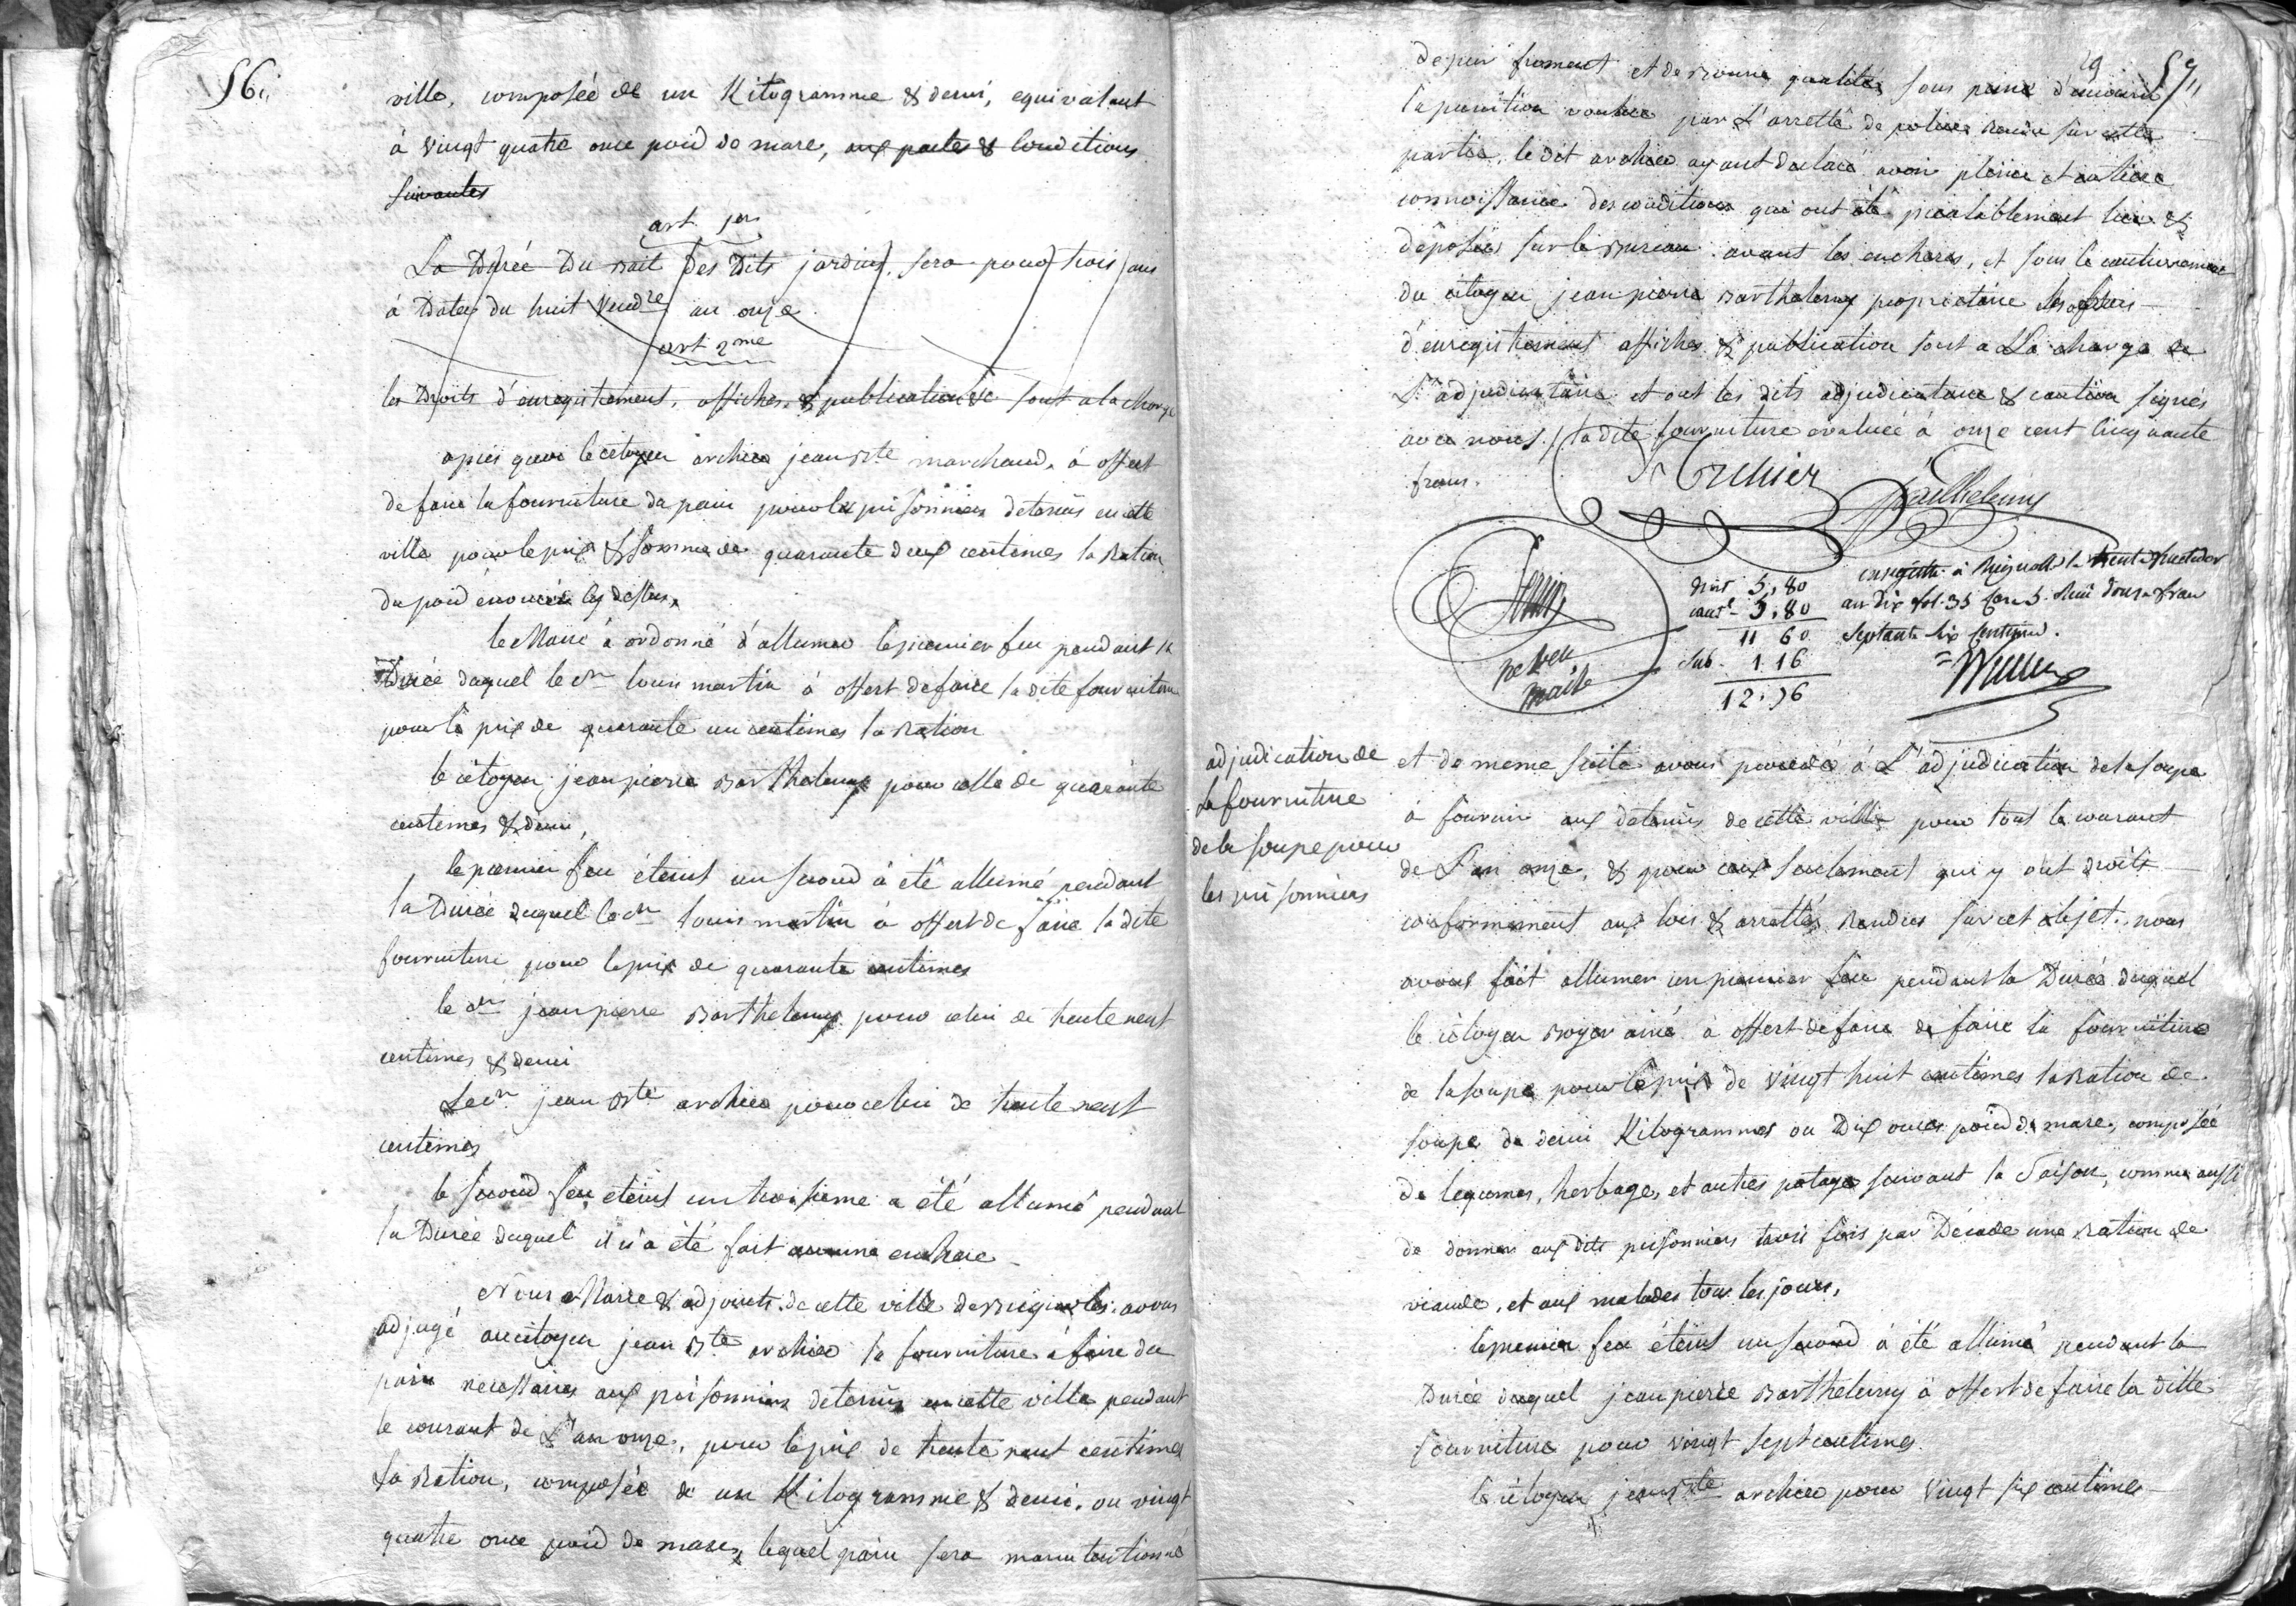 56
ville, composée de un Kilogramme & demi, equivalant
à vingt quatre once poid de marc, aux pactes & Conditions
suivantes
art. 1er
La Durée Du Bail des dits jardins, sera pour trois ans
à Dater du huit Vendre an onze
art 2me
les Droits d'enregistrement, affiches, & publication & sont a la charge
après quoi le citoyen archier jean Bte marchand, à offert
de faire la fourniture du pain pour les prisonniers detenus en cette
ville pour le prix & Somme de quarante deux centimes la Ration
du poid énoncée cy dessus,
le Maire à ordonné d'allumer le premier feu pendant la
Durée duquel le cn louis martin à offert de faire la dite fourniture
pour le prix de quarante un centimes la Ration
le citoyen jean pierre Barthelemy pour celle de quarante
centimes & demi,
le premier feu éteint un second à été allumé pendant
la Durée duquel le cn louis martin à offert de faire la dite
fourniture pour le prix de quarante centimes
le cn jean pierre Barthelemy pour celui de trente neuf
centimes & demi
Le cn jean Bte archier pour celui de trente neuf
centimes
le second feu eteint un troisieme a été allumé pendant
la Durée duquel il n'a été fait aucune enchere
Nous Maire & adjoints de cette ville de Brignoles avons
adjugé au citoyen jean Bte archier la fourniture à faire du
pain necessaires aux prisonniers detenus en cette ville pendant
le courant de L'an onze, pour le prix de trente neuf centimes
La Ration, composée de un Kilogramme & demi, ou vingt
quatre once poid de marc, lequel pain sera manutentionné
19 57
de pur froment et de Bonne qualité sous peine d'encourir
la punition voulue par L'arretté de police Rendu sur cette
partie, le dit archier ayant declaré avoir pleine et entiere
connoissance des conditions qui ont été préalablement lues &
déposées sur le Bureau avant les encheres, et sous le cautionnement
du citoyen jean pierre Barthelemy proprietaire les frais
d'enregistrement affiches & publication sont a La charge de
L'adjudicataire et ont les dits adjudicataire & caution signés
avec nous / la dite fourniture evaluée à onze cent cinquante
francs.
Archier
Barthelemy
maire
droit 5,80
caut. 5,80
11 60
sub. 1 16
12,76
enregistré à Brignolle le trente fructidor
an dix fol. 35 Case 5. Reçu douze fran
septante six centimes.
adjudication de
la fourniture
de la soupe pour
les prisonniers
et de meme suite avons procedé à L'adjudication de la soupe
à fournir aux detenus de cette ville pour tout le courant
de L'an onze, & pour ceux seulement qui y ont droit
conformement aux lois & arrettés Rendus sur cet objet. nous
avons fait allumer un premier feu pendant la Durée duquel
le citoyen Boyer ainé à offert de faire de faire la fourniture
de la soupe pour le prix de vingt huit centimes la Ration de
soupe de demi Kilogrammes ou Dix onces poid de marc, composée
de legumes, herbages, et autres potages suivant la Saison, comme aussi
de donner aux dits prisonniers trois fois par Décade une Ration de
viande, et aux malades tous les jours,
le premier feu éteint un second à été allumé pendant la
Durée duquel jean pierre Barthelemy à offert de faire la ditte
fourniture pour vingt sept centimes.
le citoyen jean Bte archier pour vingt six centimes